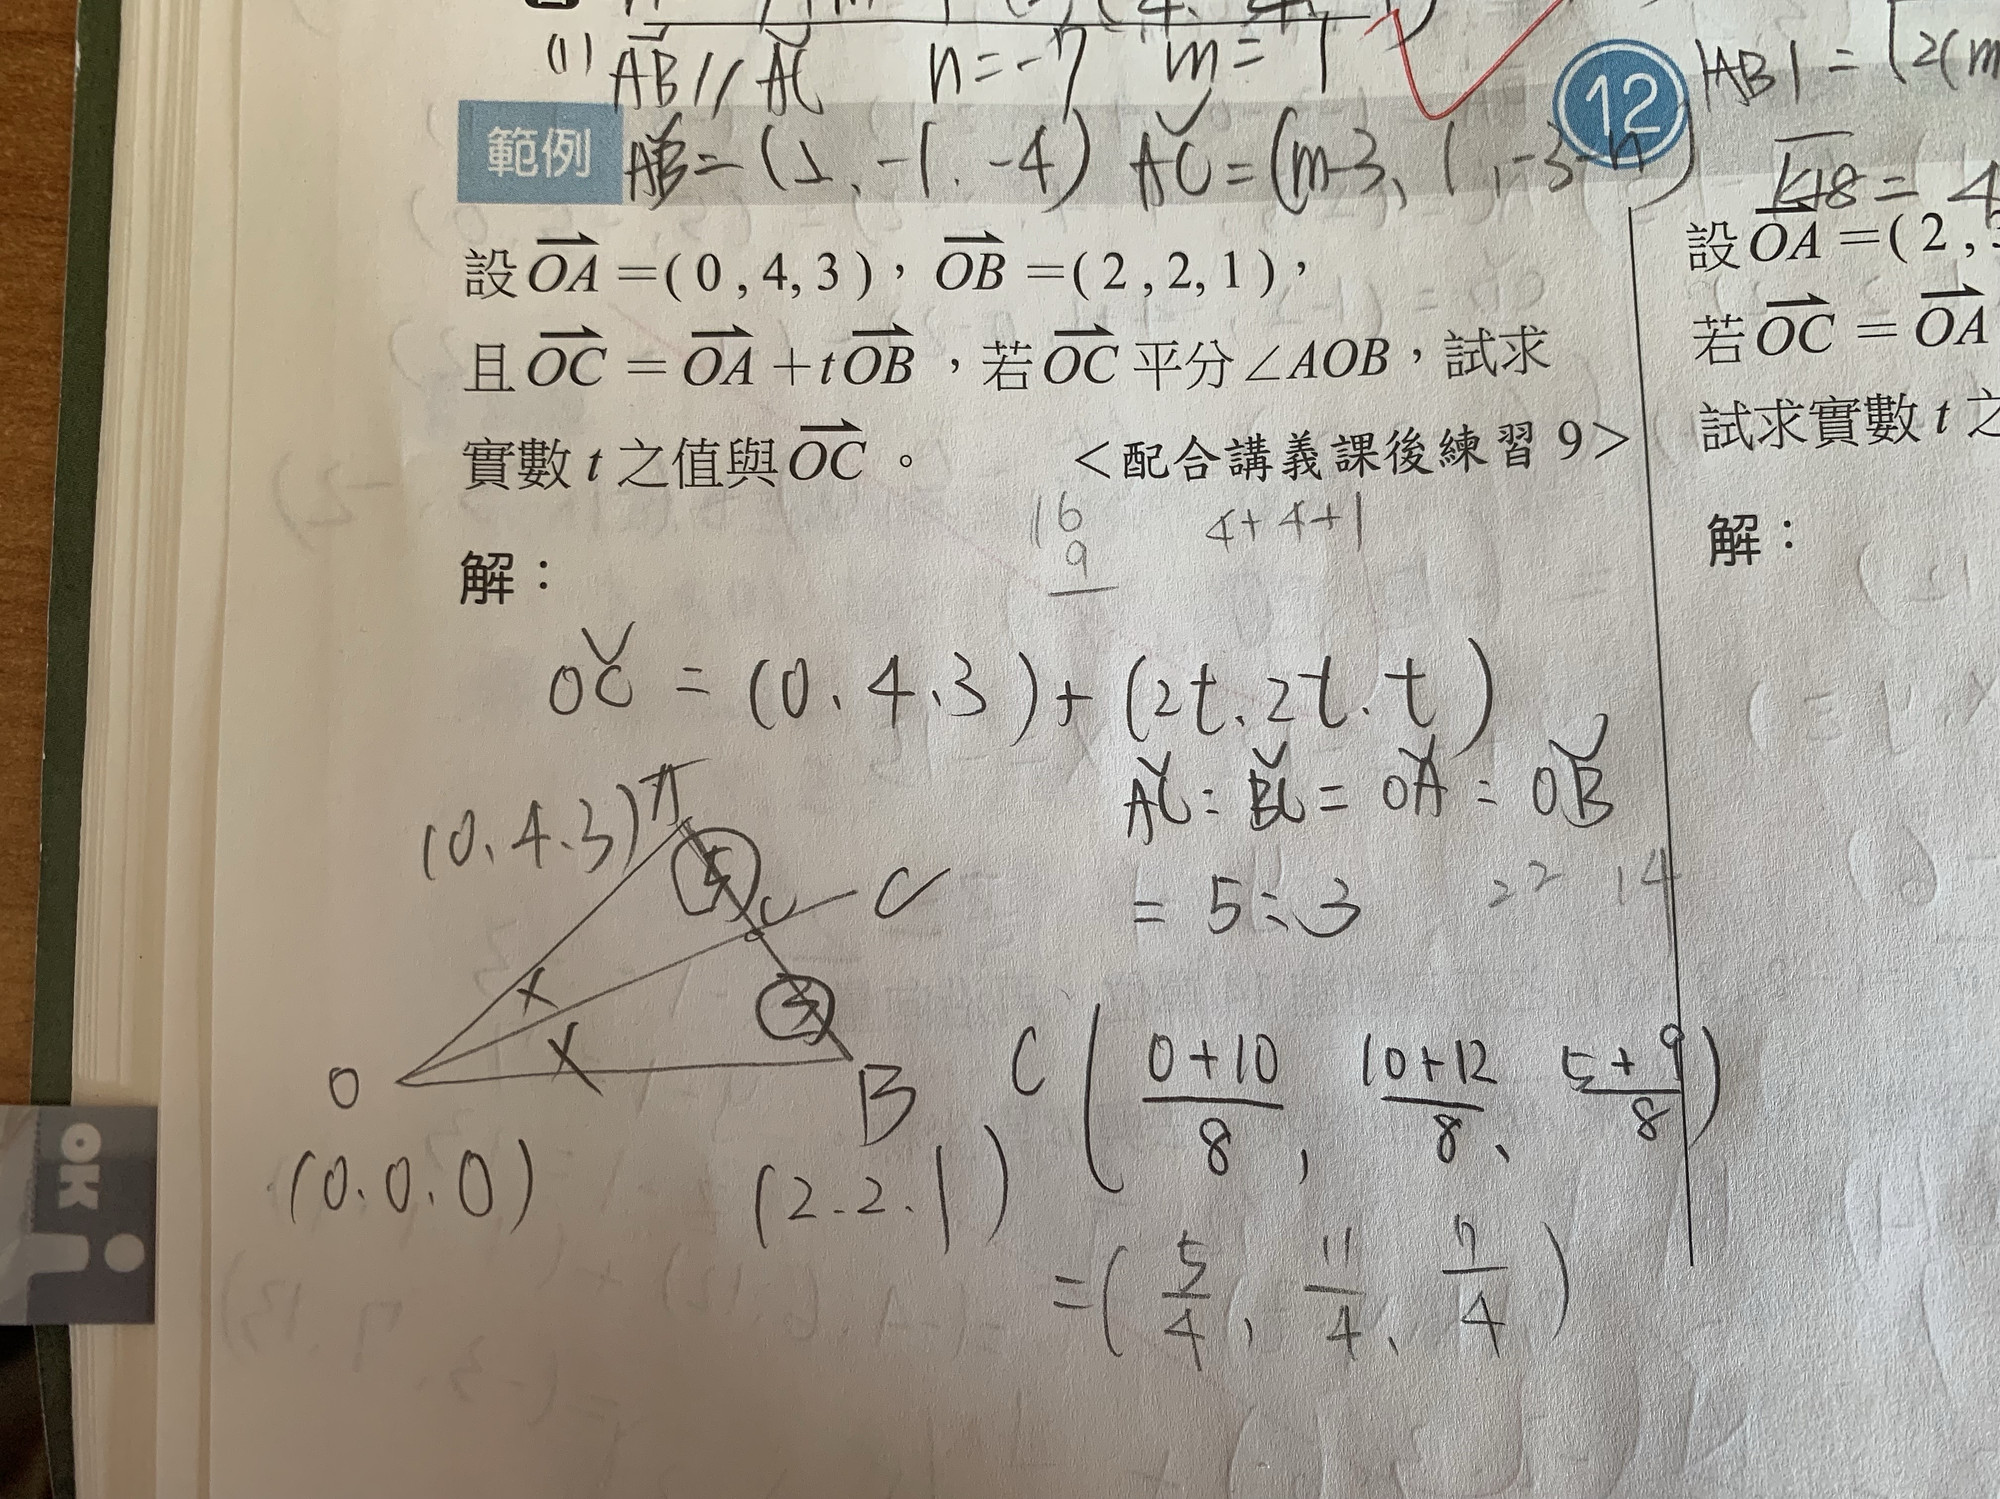 (1) AB // AC n=-7 m=7
12
|AB| = √2(m
範例 AB=(1、-1、-4) AC=(m-3、1,-3-n)
√18 = 4
設OA=(0,4,3),OB=(2,2,1),
且OC=OA+tOB,若OC平分∠AOB,試求
實數t之值與OC。 <配合講義課後練習9>
16 4+4+1
9
解:
OC = (0、4、3)+(2t、2t、t)
AC:BC = OA:OB
= 5:3
22 14
(0、4、3) A
5
C
3
O
B
(0.0.0)
(2.2.1)
C(0+10/8, 10+12/8、5+9/8)
=(5/4, 11/4、7/4)
設OA=(2,3
若OC=OA
試求實數t之
解:
OK